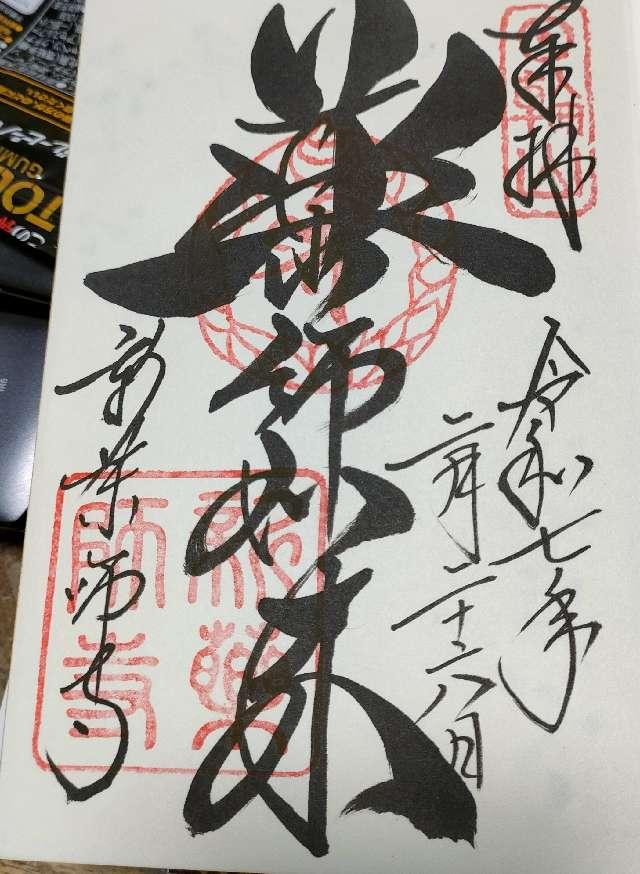 奉拝
令和七年
二月二十六日
薬師如来
新薬師寺
新薬
師寺
TOU
GUM